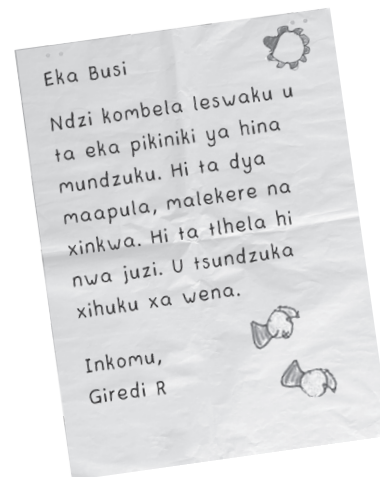 Eka Busi
Ndzi kombela leswaku u
ta eka pikiniki ya hina
mundzuku. Hi ta dya
maapula, malekere na
xinkwa. Hi ta tlhela hi
nwa juzi. U tsundzuka
xihuku xa wena.
Inkomu,
Giredi R